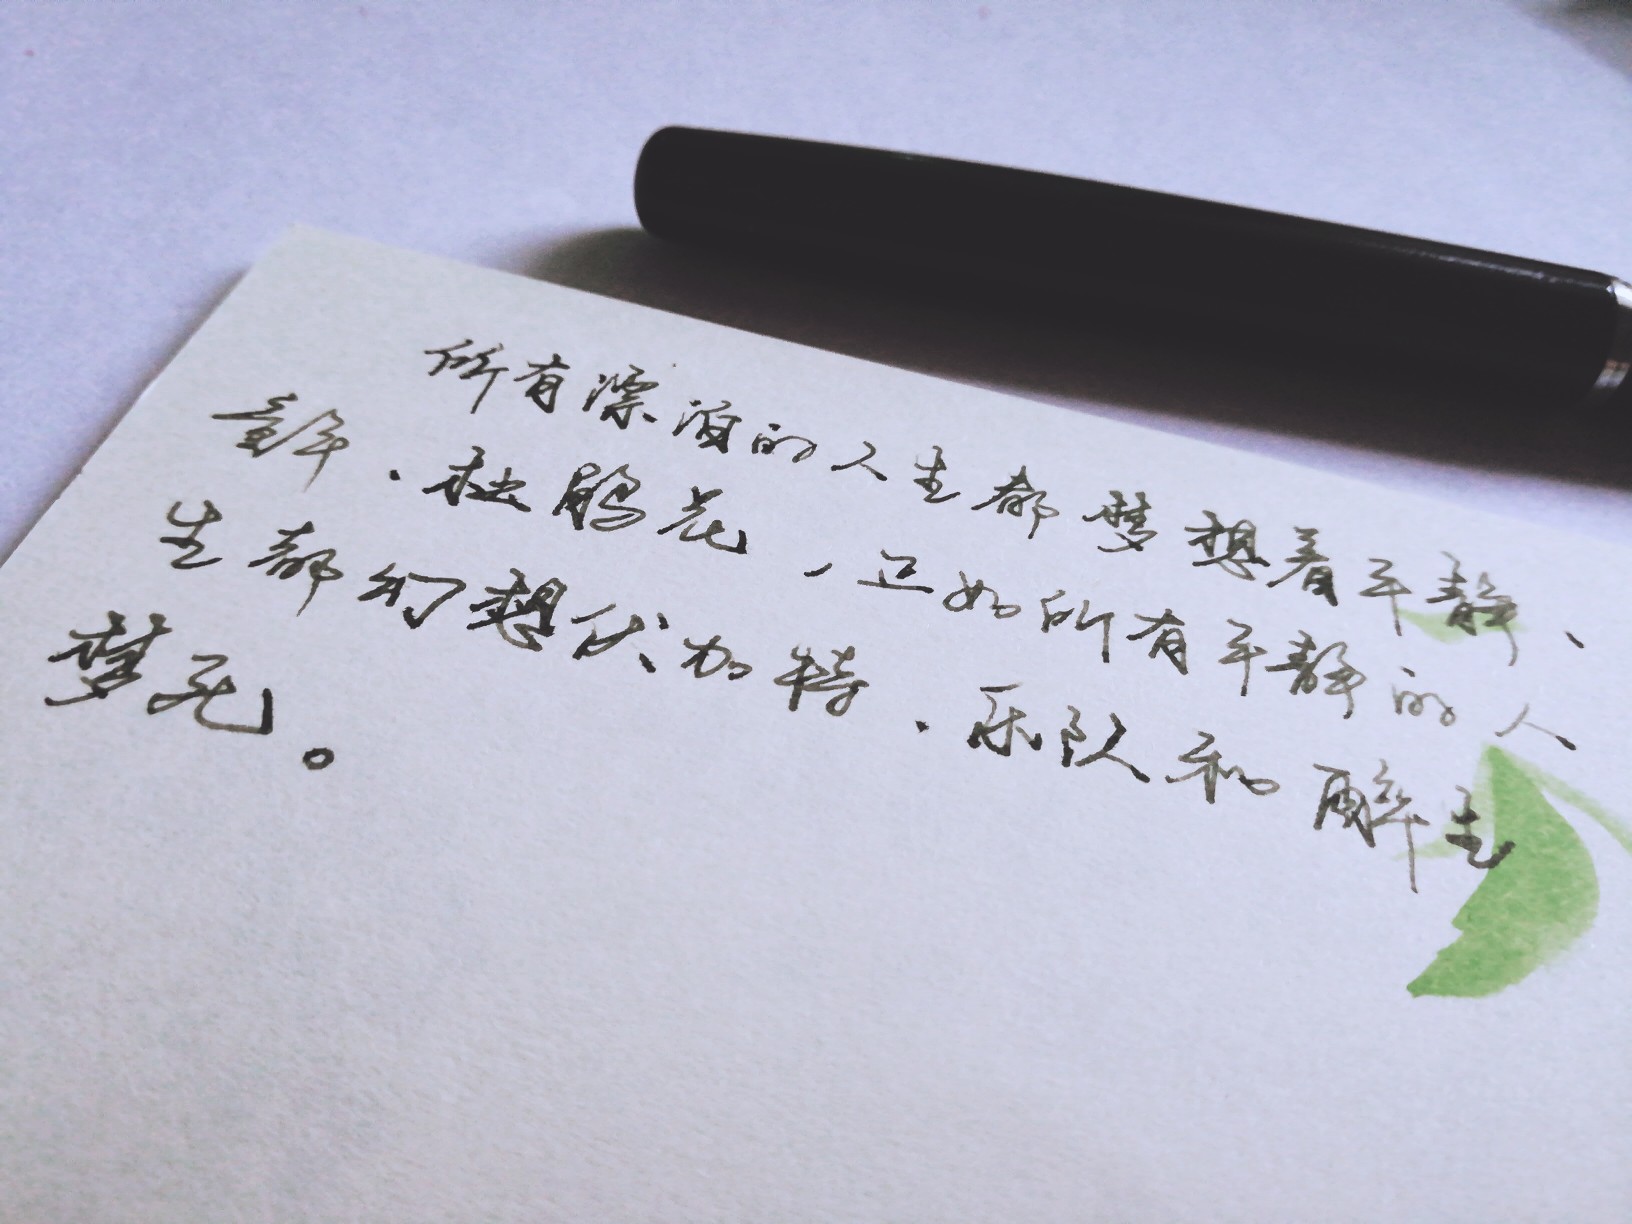 所有漂泊的人生都梦想着平静、
童年、杜鹃花，正如所有平静的人
生都幻想伏加特、乐队和醉生
梦死。